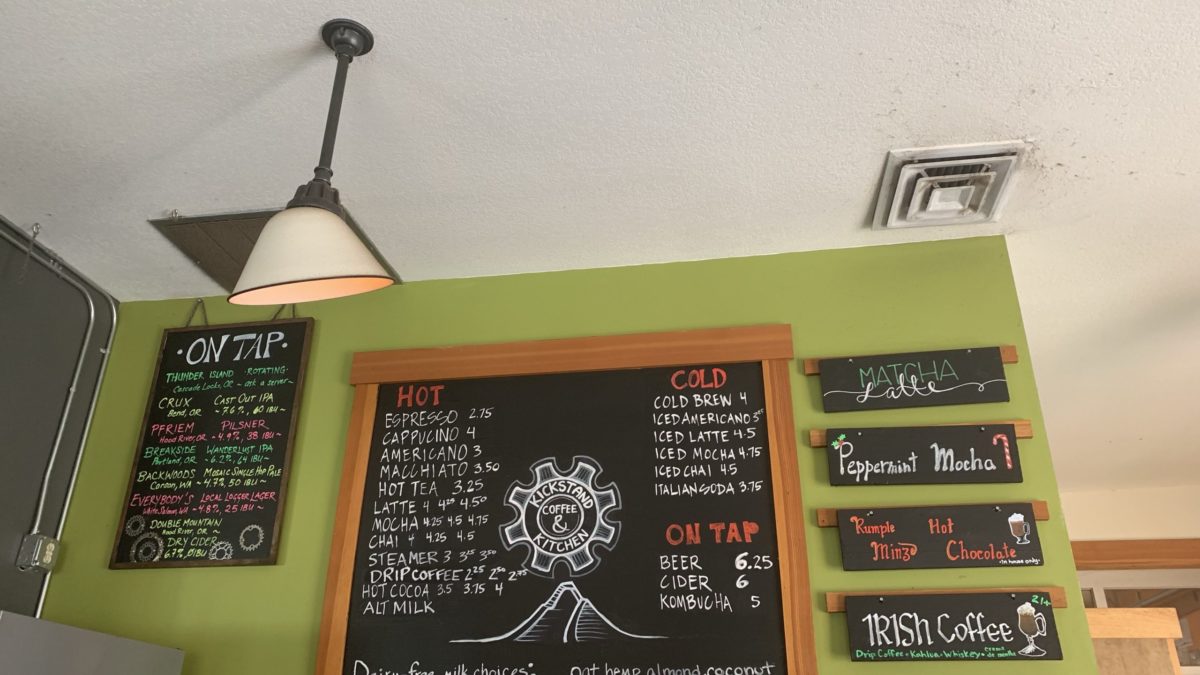 ·ON TAP·
THUNDER ISLAND ·ROTATING·
Cascade Locks, OR ~ ask a server~
CRUX CAST OUT IPA
Bend, OR ~ 7.6%, 60 IBU ~
PFRIEM PILSNER
Hood River, OR ~ 4.9%, 38 IBU ~
BREAKSIDE WANDERLUST IPA
Portland, OR ~ 6.2%, 64 IBU ~
BACKWOODS MOSAIC SINGLE HOP PALE
Carson, WA ~ 4.7%, 50 IBU ~
EVERYBODY'S LOCAL LOGGER LAGER
White Salmon, WA ~ 4.8%, 25 IBU ~
DOUBLE MOUNTAIN
Hood River, OR ~
DRY CIDER
6.7%, 0 IBU ~
HOT
ESPRESSO 2.75
CAPPUCINO 4
AMERICANO 3
MACCHIATO 3.50
HOT TEA 3.25
LATTE 4 4.25 4.50
MOCHA 4.25 4.5 4.75
CHAI 4 4.25 4.5
STEAMER 3 3.25 3.50
DRIP COFFEE 2.25 2.50 2.75
HOT COCOA 3.5 3.75 4
ALT MILK
KICKSTAND
COFFEE
&
KITCHEN
COLD
COLD BREW 4
ICED AMERICANO
ICED LATTE 4.5
ICED MOCHA 4.75
ICED CHAI 4.5
ITALIAN SODA 3.75
ON TAP
BEER 6.25
CIDER 6
KOMBUCHA 5
Dairy free milk choices: oat hemp almond coconut
MATCHA
Latte
Peppermint Mocha
Rumple Hot
Minz Chocolate
~In house only~
21+
IRISH Coffee
Drip Coffee · Kahlua · Whiskey · creme de menthe